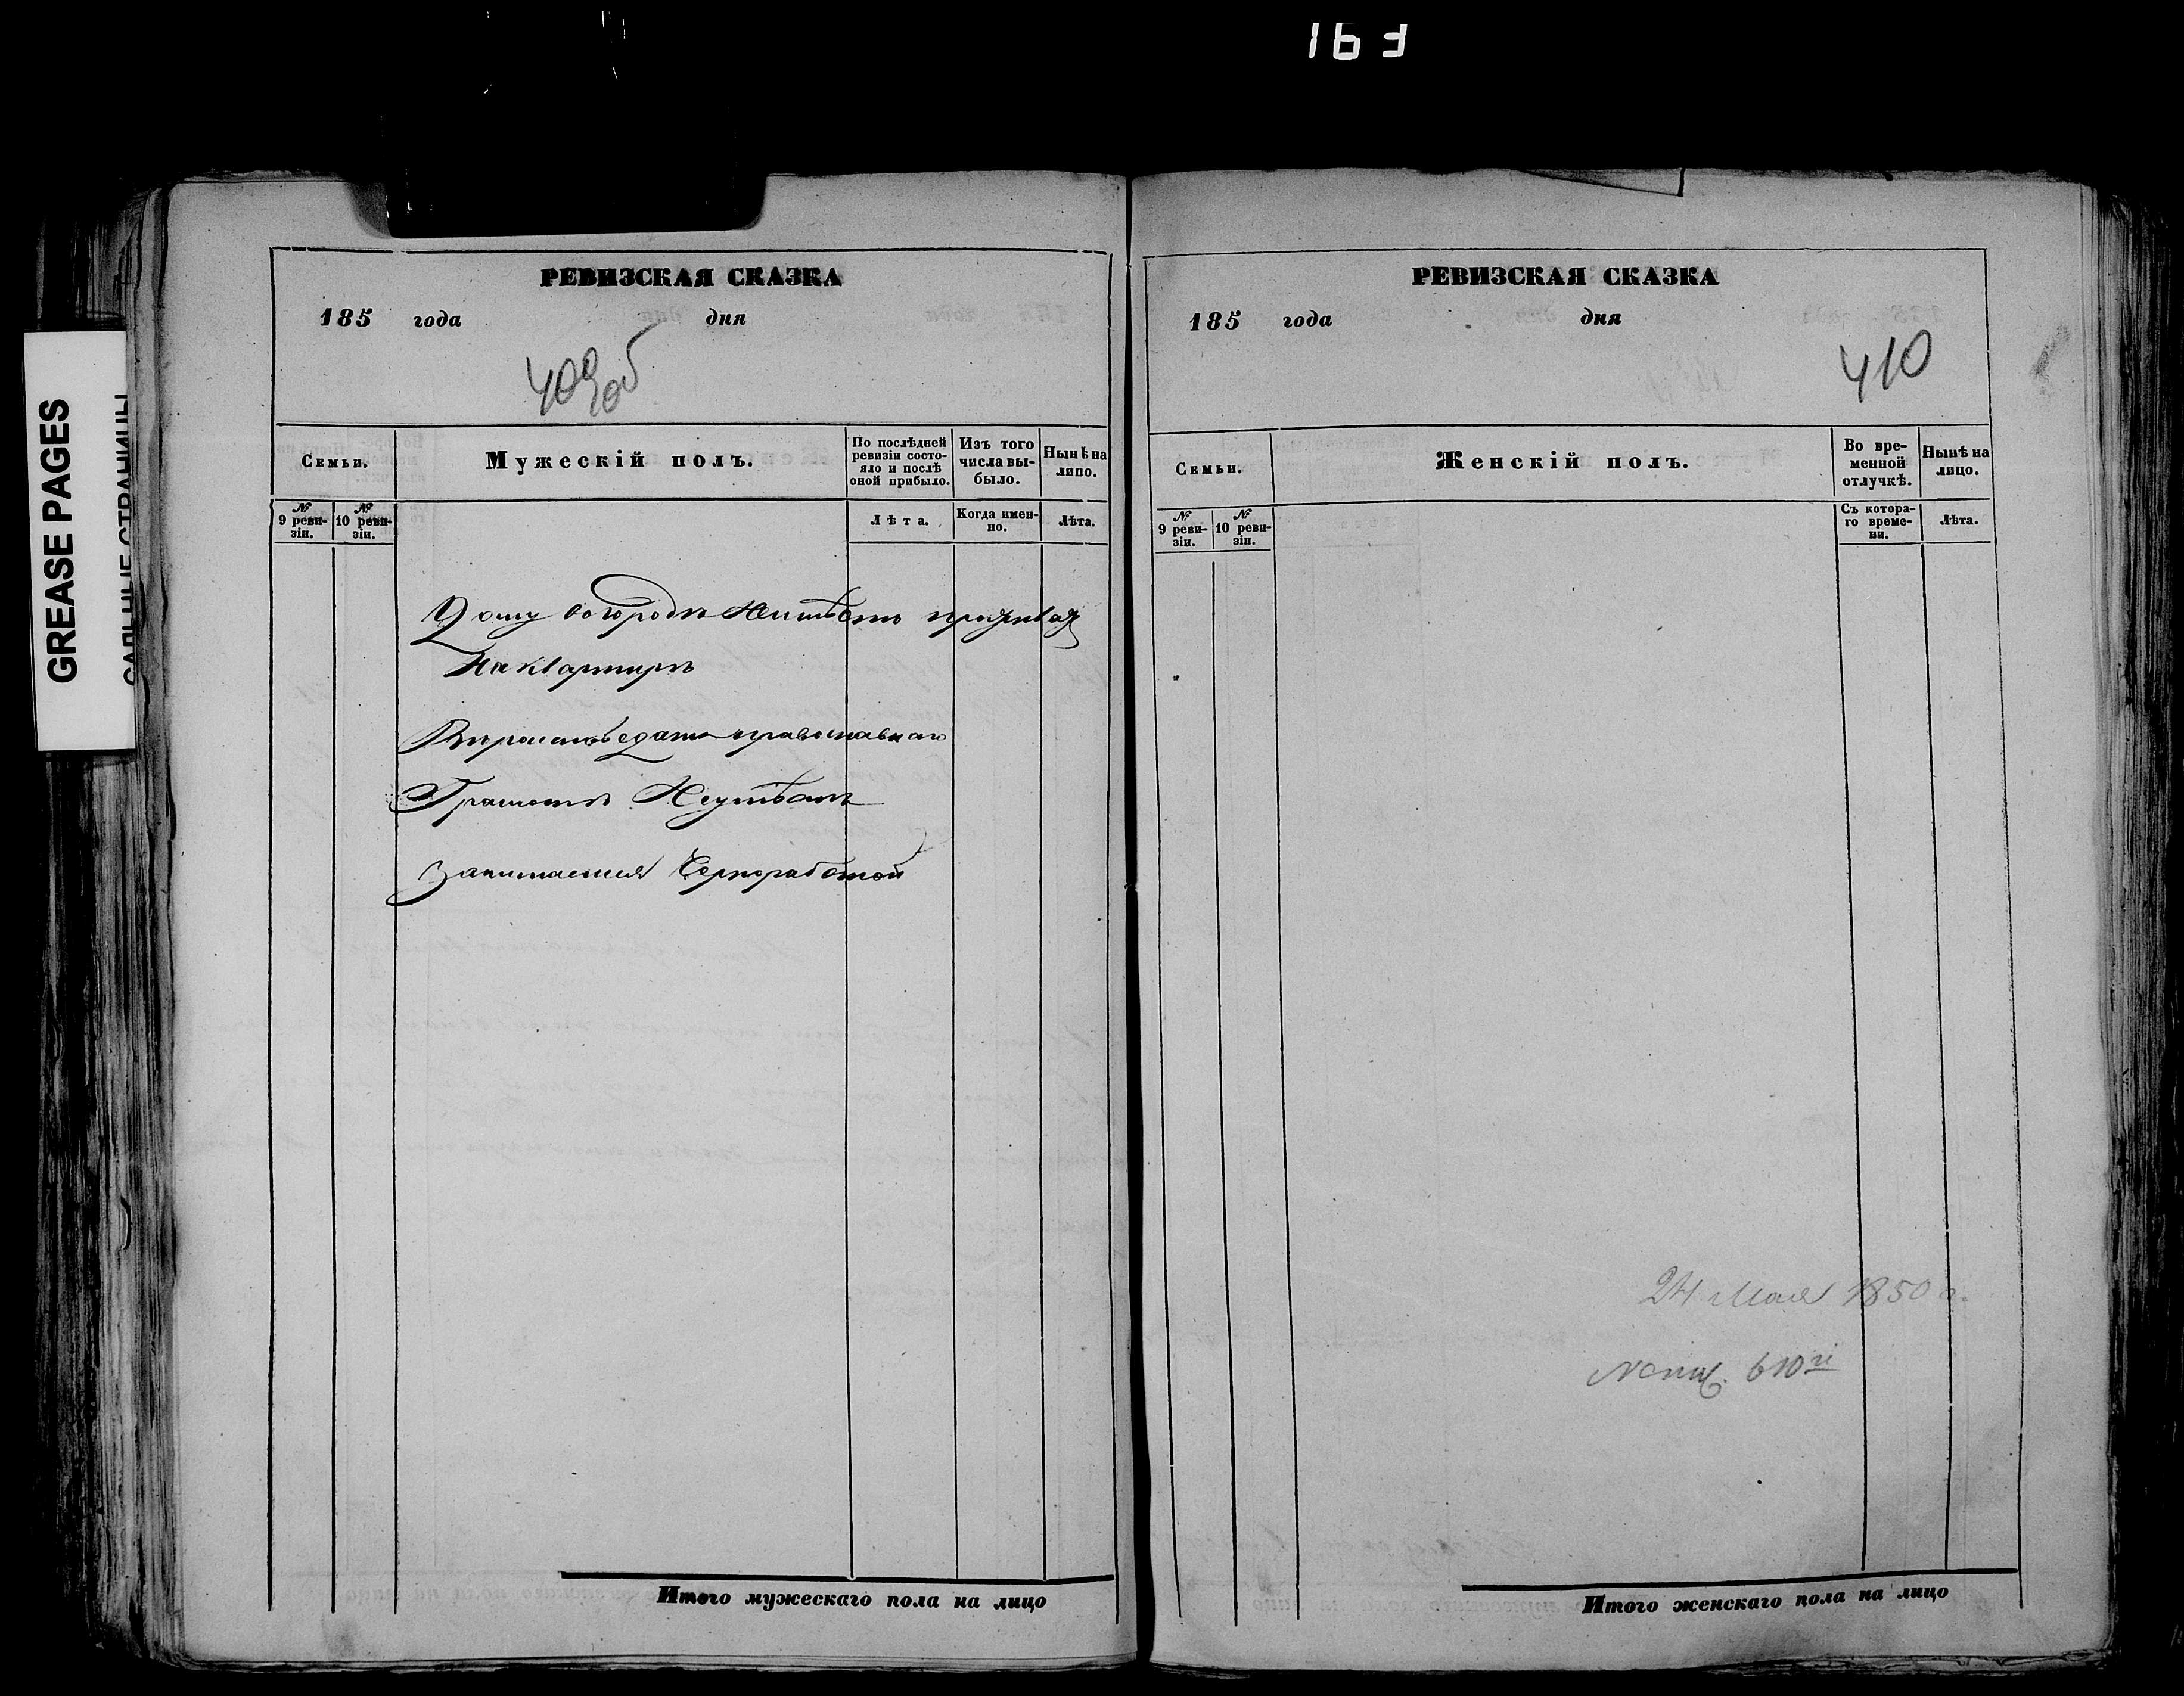 163
GREASE PAGES
САЛЬНЫЕ СТРАНИЦЫ
РЕВИЗСКАЯ СКАЗКА
185 года дня
409об
Семьи.
Мужескій полъ.
По послѣдней ревизіи состояло и послѣ оной прибыло.
Изъ того числа выбыло.
Нынѣ на лицо.
№ 9 ревизіи.
№ 10 ревизіи.
Лѣта.
Когда именно.
Лѣта.
Дому въ городѣ Неимѣетъ проживая
На квартирѣ
Вѣроисповѣданія православнаго
Грамотѣ Неумѣетъ
Занимается Чорноработой
Итого мужескаго пола на лицо
РЕВИЗСКАЯ СКАЗКА
185 года дня
410
Семьи.
Женскій полъ.
Во временной отлучкѣ.
Нынѣ на лицо.
№ 9 ревизіи.
№ 10 ревизіи.
Съ котораго времени.
Лѣта.
24 Мая 1850 г.
Итого женскаго пола на лицо